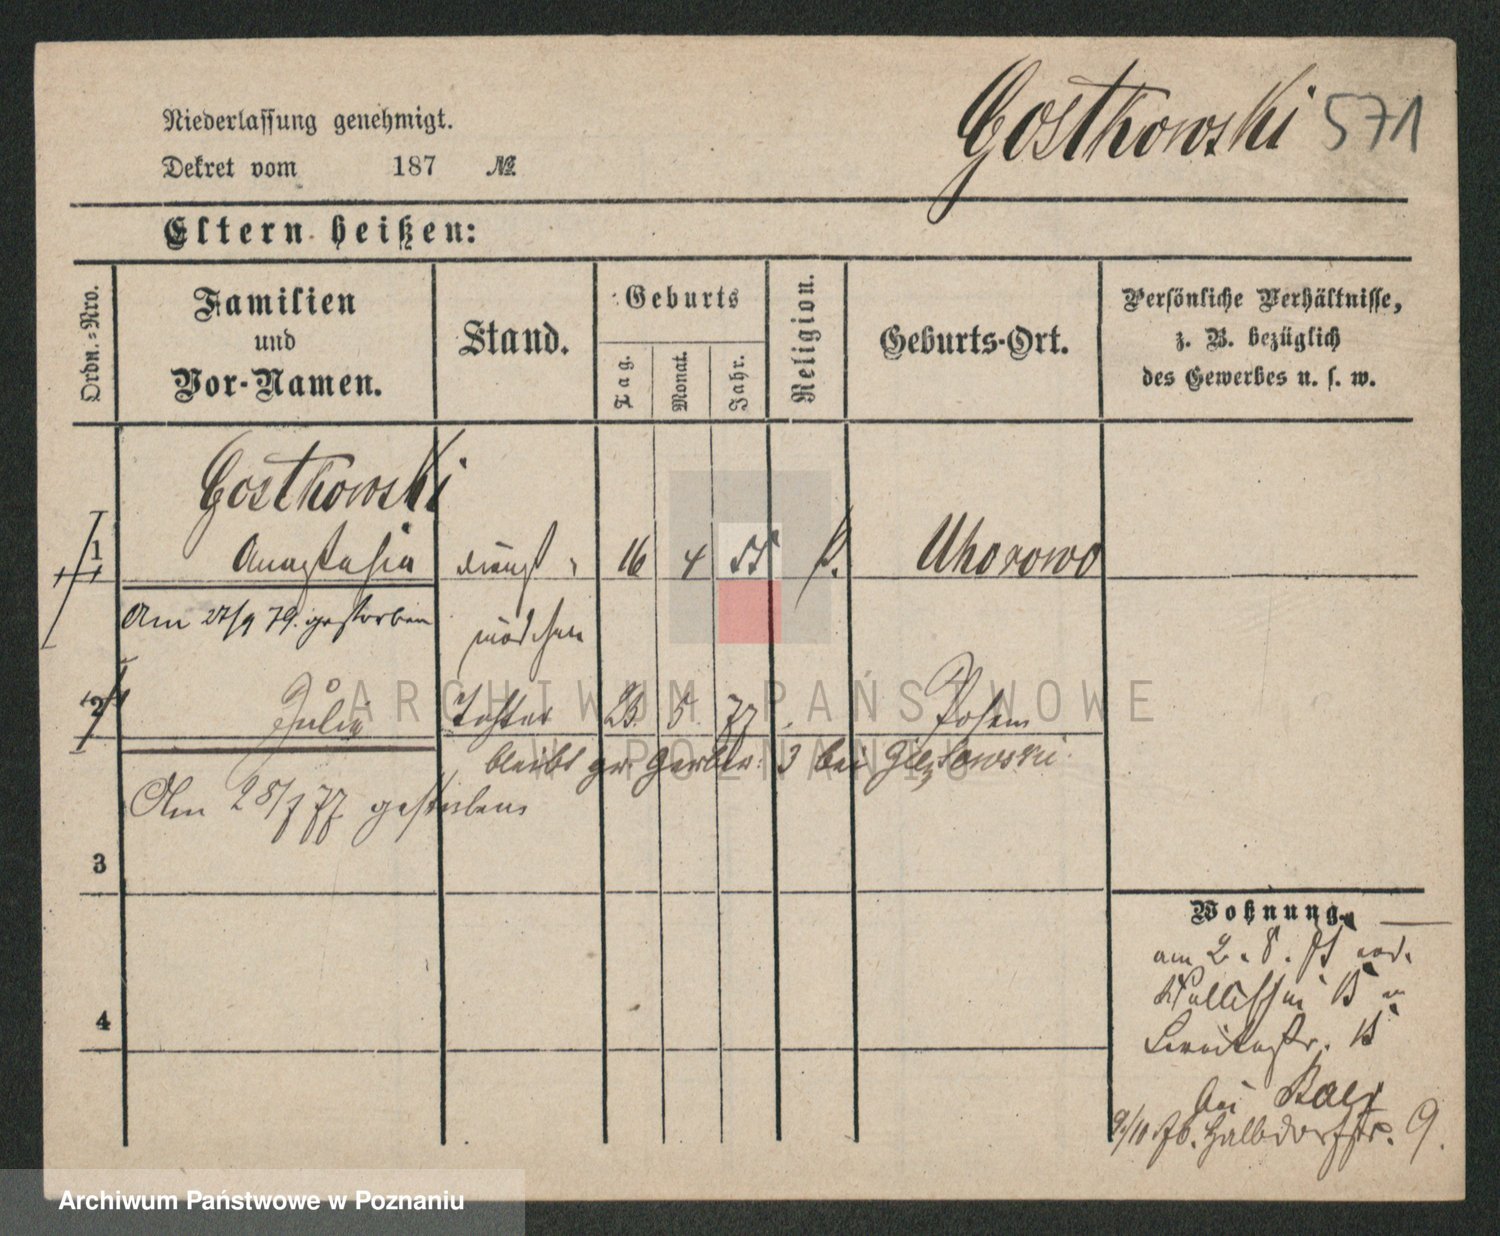 Niederlassung genehmigt.
Dekret vom 187 №
Gostkowski 571
Eltern heißen:
Ordn.-Nro.
Familien
und
Vor-Namen.
Stand.
Geburts
Tag.
Monat.
Jahr.
Religion.
Geburts-Ort.
Persönliche Verhältnisse,
z. B. bezüglich
des Gewerbes u. s. w.
Gostkowski
1 Anastasia Dienst- 16 4 55 k. Uhorowo
Am 27/9 79. gestorben
mädchen
2 Julie Tochter 23. 5. 77 Posen
bleibt gr. Gerber. 3 bei
Am 28/7 77 gestorben
3
4
Wohnung.
am 2. 8. 75 von
Wallischei
Breitestr. 15
bei Baer
9/10.76. Halbdorfstr. 9.
ARCHIWUM PAŃSTWOWE
W POZNANIU
Archiwum Państwowe w Poznaniu